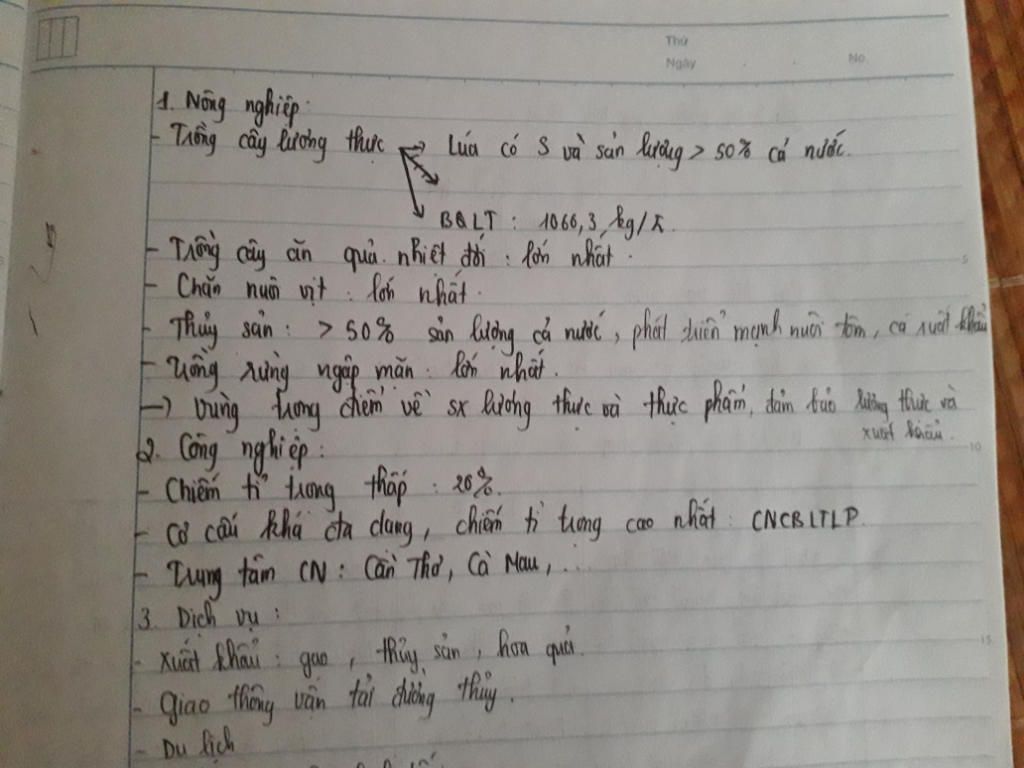 Thứ
Ngày No.
1. Nông nghiệp:
- Trồng cây lương thực → Lúa có S và sản lượng > 50% cả nước.
BQLT : 1066,3 kg/
- Trồng cây ăn quả nhiệt đới : lớn nhất.
- Chăn nuôi vịt : lớn nhất.
- Thủy sản : > 50% sản lượng cả nước, phát triển mạnh nuôi tôm, cá xuất khẩu
- Trồng rừng ngập mặn : lớn nhất.
→ Vùng trọng điểm về sx lương thực và thực phẩm, đảm bảo lương thực và
xuất khẩu.
2. Công nghiệp :
- Chiếm tỉ trọng thấp : 20%.
- Cơ cấu khá đa dạng, chiếm tỉ trọng cao nhất : CNCBLTLP.
- Trung tâm CN : Cần Thơ, Cà Mau, ...
3. Dịch vụ :
- Xuất khẩu : gạo, thủy sản, hoa quả.
- Giao thông vận tải đường thủy.
- Du lịch
5
10
15